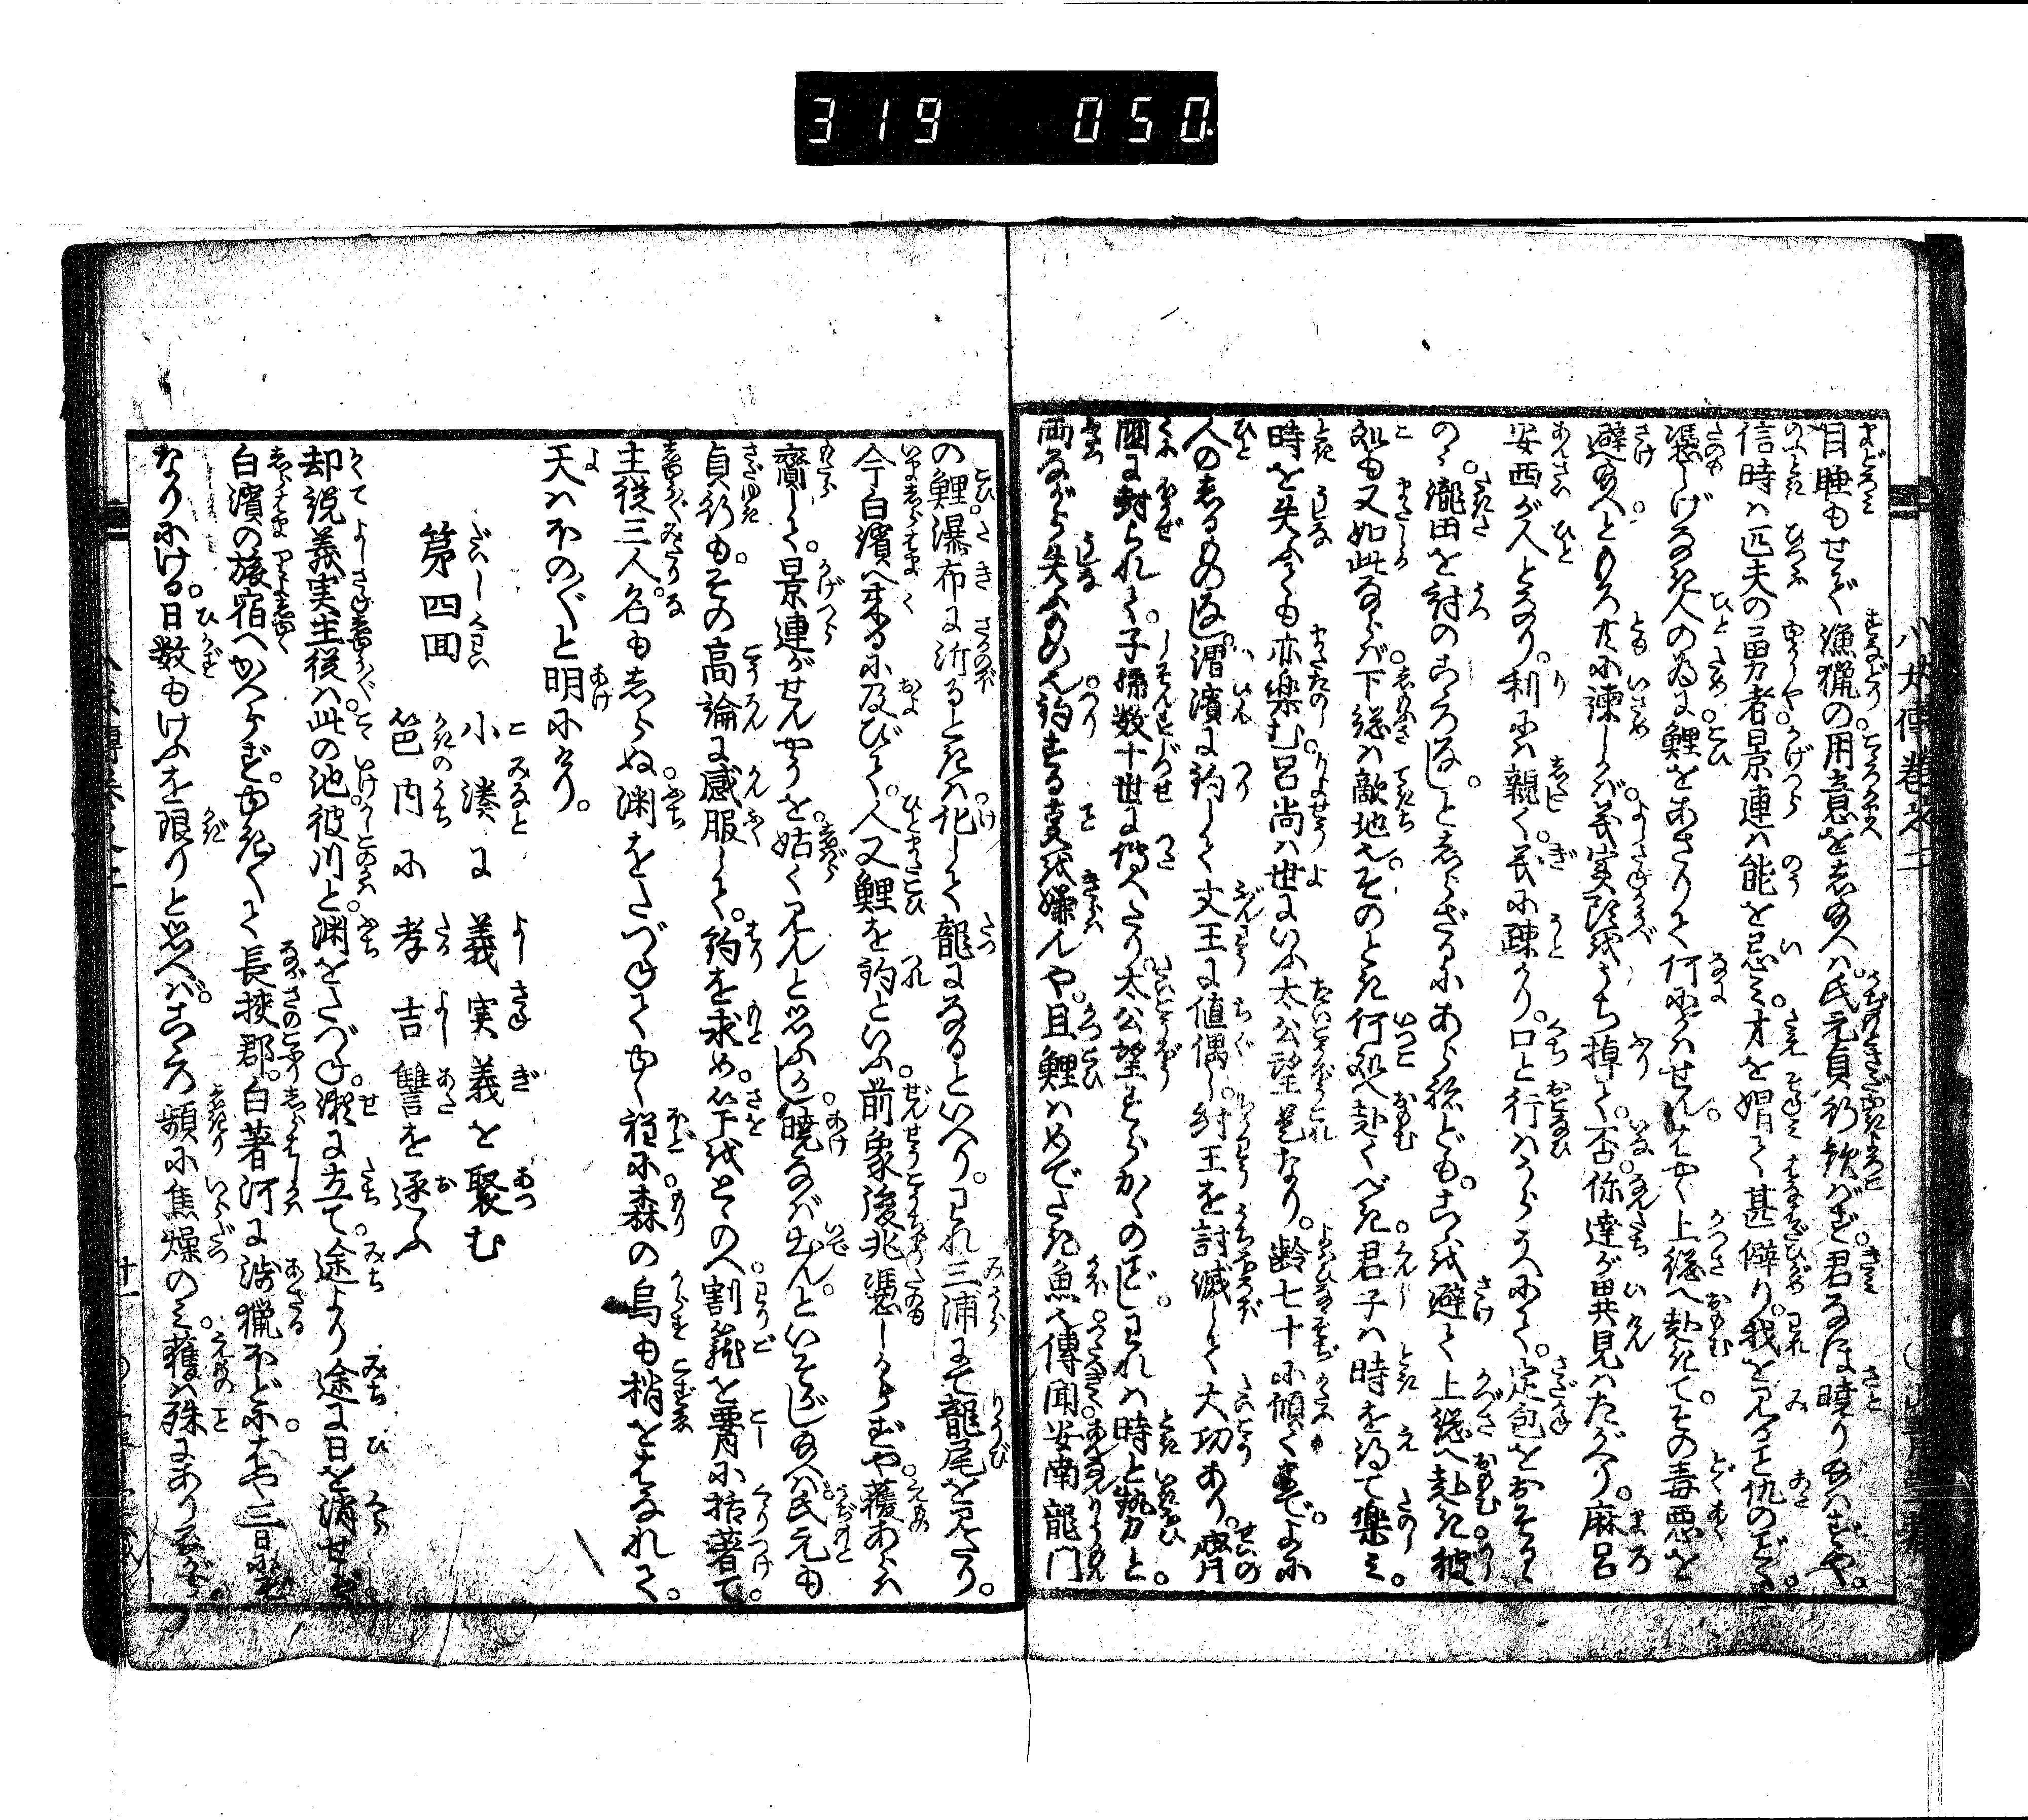 319 050
目睡もせず漁猟の用意をし給へば。氏元貞行歎ばず。君なほ暁り給はずや。
信時は匹夫の勇者。景連は能を忌み。才を媢て甚僻り。我を見ること仇のごとく。
憑しげなき人の為に。鯉をあさりて何にかはせん。はやく上総へ赴きて。その毒悪を
避給へともろ共に諫しかば。義実頭をうち掉て。否。你達が異見はたがへり。麻呂
安西が人となり。利には親く。義に疎かり。口と行はうらうへにて。定包をおそるゝ
の。瀧田を討のこゝろなし。としらざるにあらねども。こゝを避て上総へ赴き。彼
処も又如此ならば。下総は敵地也。そのとき何処へ赴くべき。君子は時を得て楽み。
時を失ふても亦楽む。呂尚は世にいふ太公望是なり。齢七十に傾くまで。よに
人のしるものなし。渭濱に釣して文王に値偶し。紂王を討滅して大功あり。齊の
國に封られて。子孫数十世に傳へたり。太公望すらかくのごとし。われは時と勢と。
両ながら失ふもの也。釣することを嫌んや。且鯉はめでたき魚也。傳聞安南龍門
の鯉。瀑布に泝るときは。化して龍になるといへり。われ三浦にて龍尾を見たり。
今白濱へ来るに及びて。人又鯉を釣といふ。前象後兆憑しからずや。獲あらば
齎して。景連がせんやうを。姑く見んと思ふかし。暁なば出ん。といそがし給へば。氏元も
貞行も。その高論に感服して。釣を求め。竿をとゝのへ。割籠を腰に括著て。
主従三人。名もしらぬ渊をたづねてゆく程に。森の烏も梢をはなれて。
天はほのぼのと明にけり。
第四回
小湊に義実義を聚む
笆内に孝吉讐を逐ふ
却説義実主従は。此の池彼川と。渊をたづね。瀬に立て。途より途に日を消せば。
白濱の旅宿へかへらず。ゆきゆきて長狹郡。白著河に渉猟ほどに。はや三日にぞ
なりにける。日数もけふを限りと思へば。こゝろ頻に焦燥のみ。獲は殊にありながら。